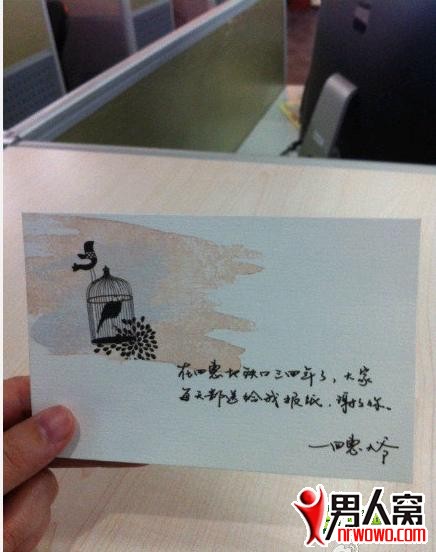 在四惠地铁口三四年了，大家
每天都送给我报纸，谢谢你。
—四惠大爷
男人窝
nrwowo.com